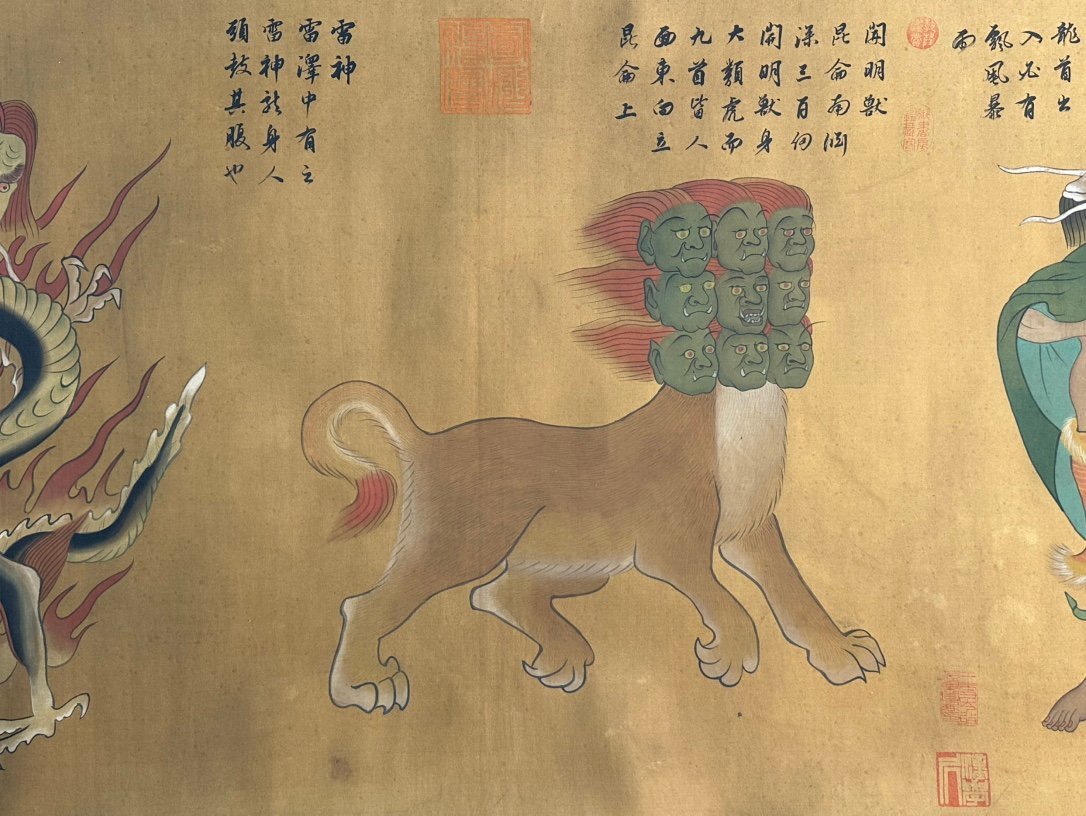 龍首出
入必有
飄風暴
雨
開明獸
昆侖南淵
深三百仞
開明獸身
大類虎而
九首皆人
面東向立
昆侖上
雷神
雷澤中有之
雷神龍身人
頭鼓其腹也